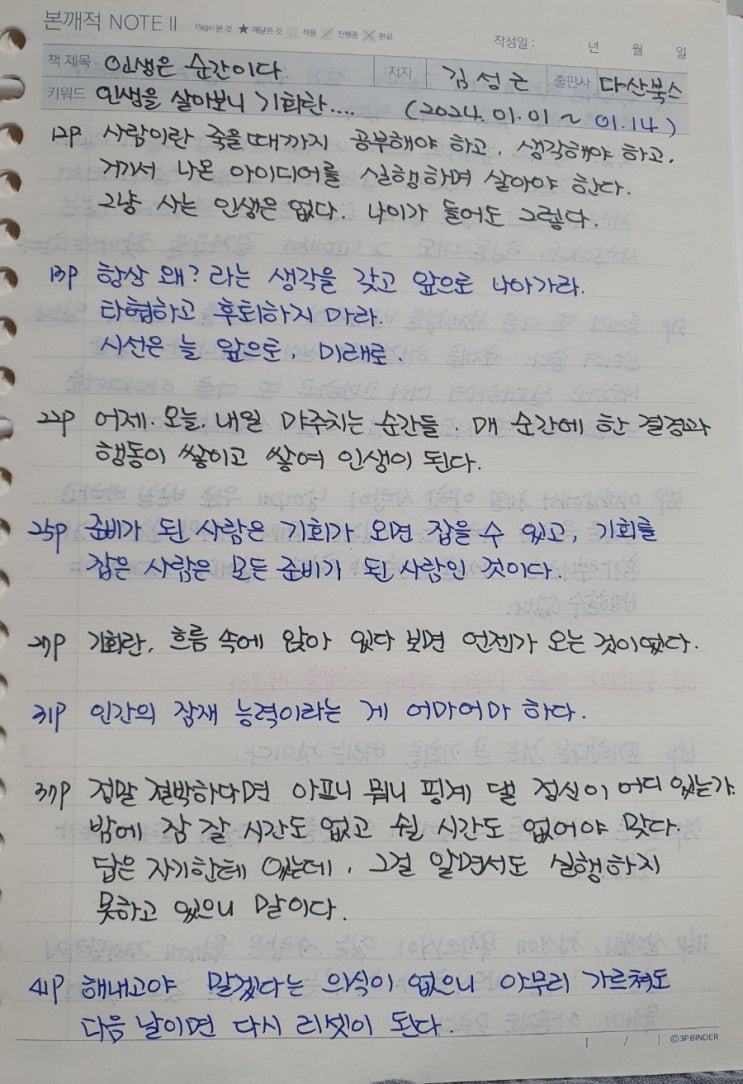 본깨적 NOTE II Page: 본 것 ★ 깨달은 것 적용 진행중 완료 작성일 : 년 월 일
책 제목 인생은 순간이다. 저자 김성근 출판사 다산북스
키워드 인생을 살아보니 기회란.... (2024. 01. 01 ~ 01. 14)
12P 사람이란 죽을때까지 공부해야 하고, 생각해야 하고,
거기서 나온 아이디어를 실행하며 살아야 한다.
그냥 사는 인생은 없다. 나이가 들어도 그렇다.
13P 항상 왜? 라는 생각을 갖고 앞으로 나아가라.
타협하고 후퇴하지 마라.
시선은 늘 앞으로, 미래로.
22P 어제. 오늘. 내일 마주치는 순간들. 매 순간에 한 결정과
행동이 쌓이고 쌓여 인생이 된다.
25P 준비가 된 사람은 기회가 오면 잡을 수 있고, 기회를
잡은 사람은 모든 준비가 된 사람인 것이다.
27P 기회란, 흐름 속에 앉아 있다 보면 언젠가 오는 것이었다.
31P 인간의 잠재 능력이라는 게 어마어마 하다.
37P 정말 절박하다면 아프니 뭐니 핑계 댈 정신이 어디 있는가.
밤에 잠 잘 시간도 없고 쉴 시간도 없어야 맞다.
답은 자기한테 있는데, 그걸 알면서도 실행하지
못하고 있으니 말이다.
41P 해내고야 말겠다는 의식이 없으니 아무리 가르쳐도
다음 날이면 다시 리셋이 된다.
[ / ] ©3P BINDER